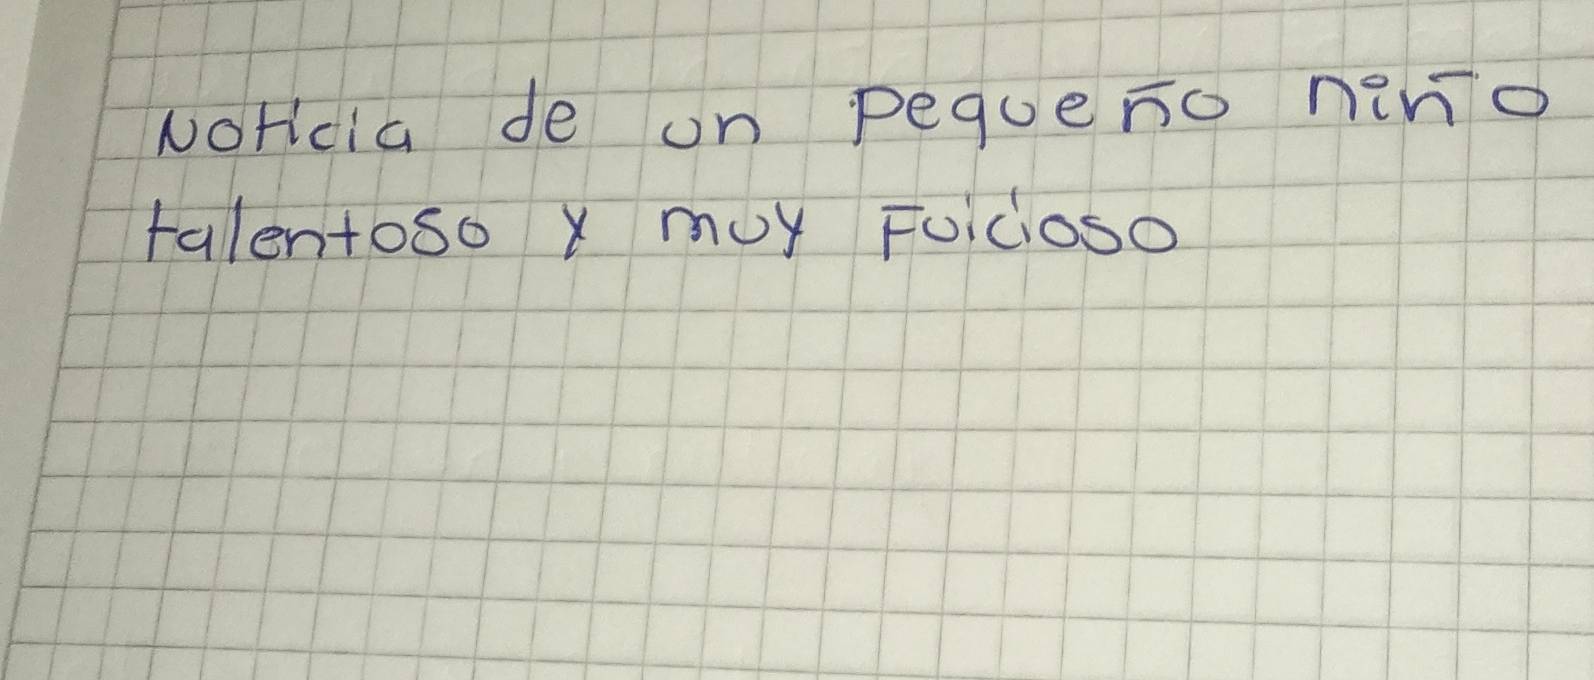 Noticia de un pequeño niño
talentoso y muy Fuicioso